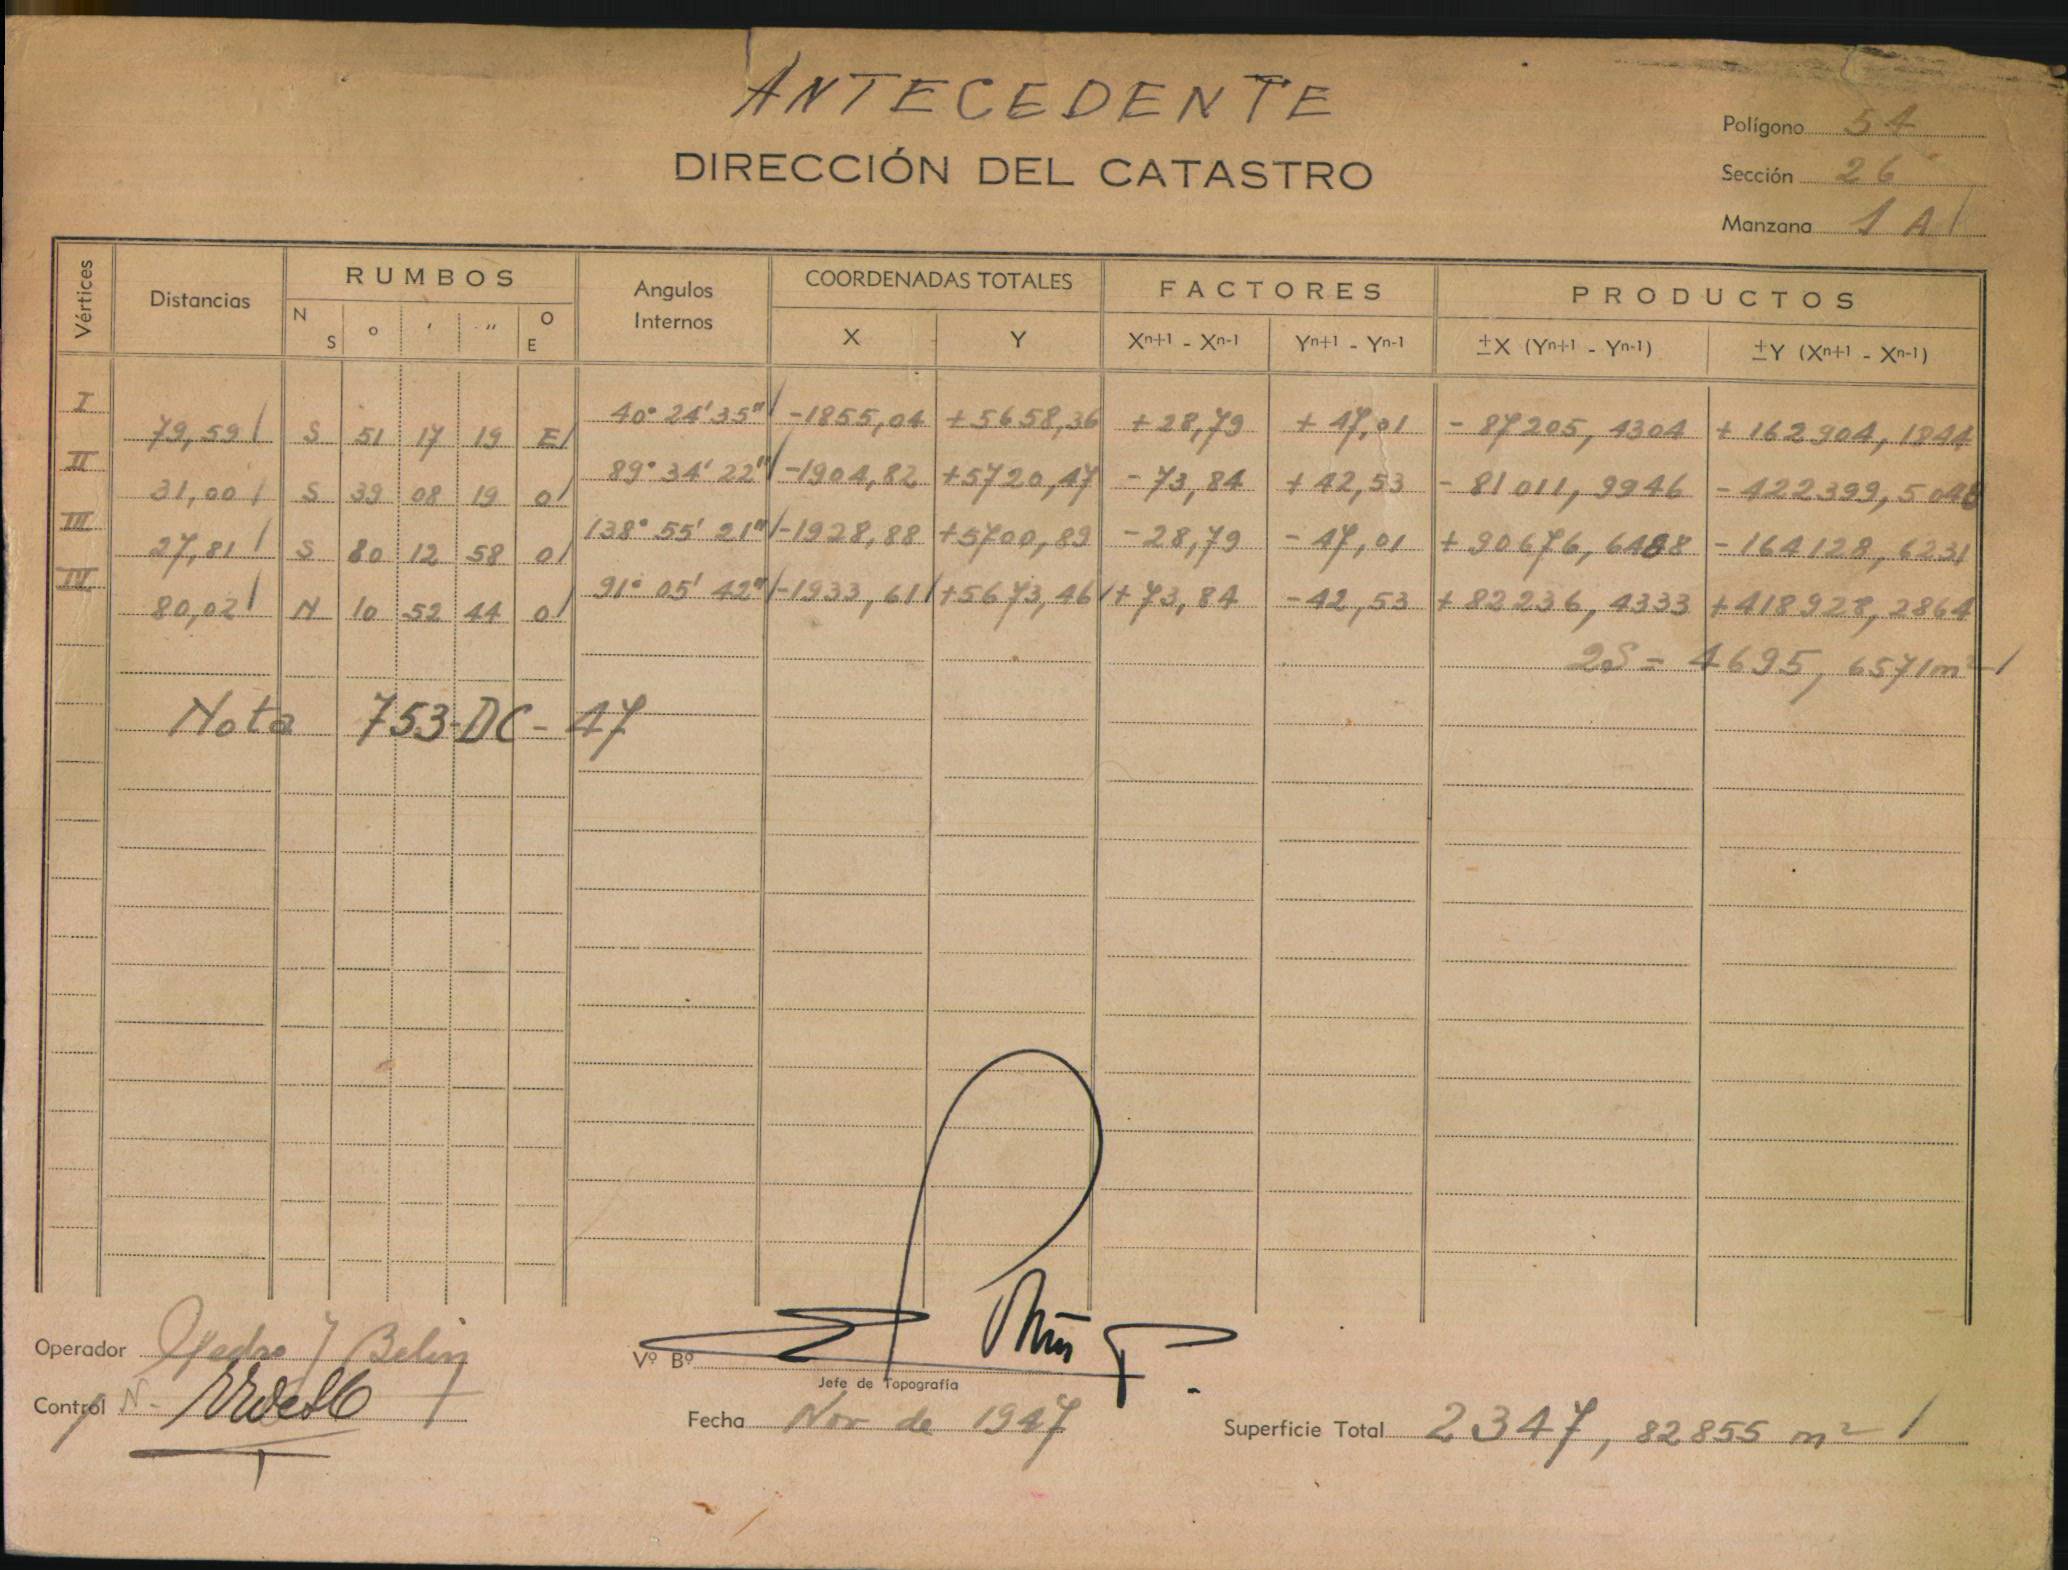 ANTECEDENTE
DIRECCIÓN DEL CATASTRO
Polígono 54
Sección 26
Manzana 1 A
Vértices Distancias RUMBOS Angulos Internos COORDENADAS TOTALES FACTORES PRODUCTOS
N S ° ' " O E X Y Xn+1 - Xn-1 Yn+1 - Yn-1 ±X (Yn+1 - Yn-1) ±Y (Xn+1 - Xn-1)
I 40° 24' 35" -1855,04 +5658,36 +28,79 +47,01 -87205,4304 +162904,1844
79,59 S 51 17 19 E
II 89° 34' 22" -1904,82 +5720,47 -73,84 +42,53 -81011,9946 -422399,5048
31,00 S 39 08 19 O
III 138° 55' 21" -1928,88 +5700,89 -28,79 -47,01 +90676,6488 -164128,6231
27,81 S 80 12 58 O
IV 91° 05' 42" -1933,61 +5673,46 +73,84 -42,53 +82236,4333 +418928,2864
80,02 N 10 52 44 O
2S = 4695,6571 m²
Nota 753-DC-47
Operador Pedro J Belin
Control
Vº Bº
Jefe de Topografía
Fecha Nov de 1947
Superficie Total 2347,82855 m²